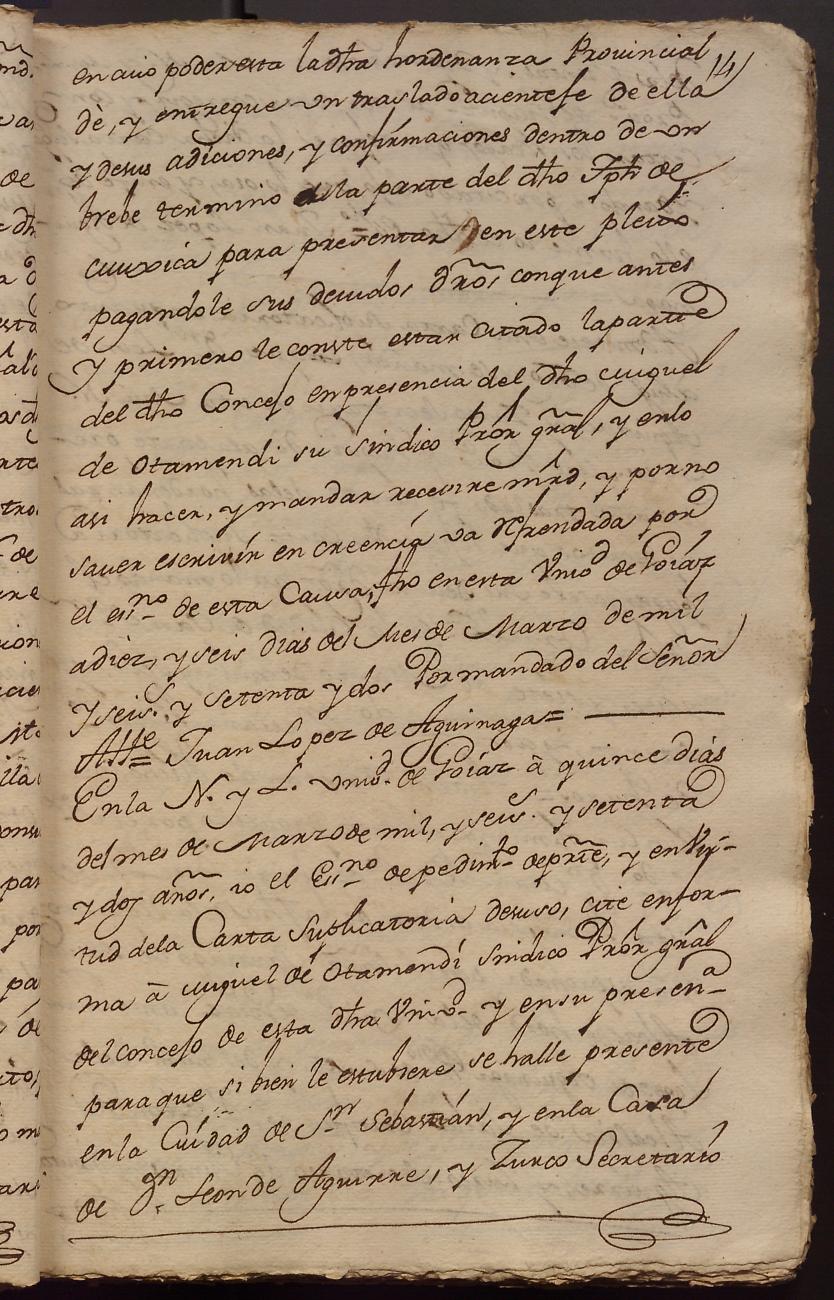 14
en cuio poder esta la dha hordenanza Provincial
dè, y entregue un traslado acientefe de ella
y desus adiciones, y confirmaciones dentro de un
brebe termino a la parte del dho Jph de
para presentar en este pleito
pagandole sus devidos dros conque antes
y primero le conste estar citado laparte
del dho Concejo en presencia del dho Miguel
de Otamendi su sindico Pror gral, y enlo
asi hacer, y mandar recevire mrd, y porno
saver escrivir en creencia va refrendada por
el essno de esta Causa, fho en esta Vnid de Goiaz
adiez, y seis dias del Mes de Marzo de mil
y seis. y setenta y dos Por mandado del Señor
Alle Juan Lopez de Aguinaga =
En la N. y L. vnid. de Goiaz à quince dias
del mes de Marzo de mil, y seis. y setenta
y dos años, io el Essno de pedimto de prte, y en Vir-
tud dela Carta Suplicatoria desuso, cite enfor-
ma à Miguel de Otamendi sindico Pror gral
del concejo de esta dha Vnid y en su presena
paraque si bien le estubiere se halle presente
en la Ciudad de Sn Sebastian, y enla Casa
de Dn. Leon de Aguirre, y Zurco Secretario